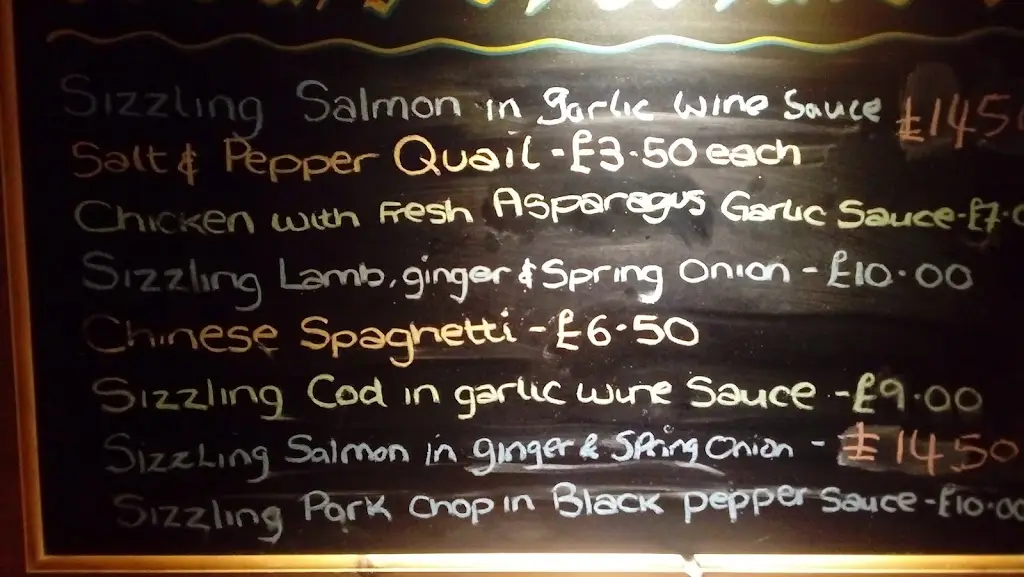 Sizzling Salmon in garlic wine Sauce £145
Salt & Pepper Quail - £3.50 each
Chicken with Fresh Asparagus Garlic Sauce - £7.
Sizzling Lamb, ginger & Spring Onion - £10.00
Chinese Spaghetti - £6.50
Sizzling Cod in garlic wine Sauce - £9.00
Sizzling Salmon in ginger & Spring Onion - £1450
Sizzling Pork Chop in Black pepper Sauce - £10.00